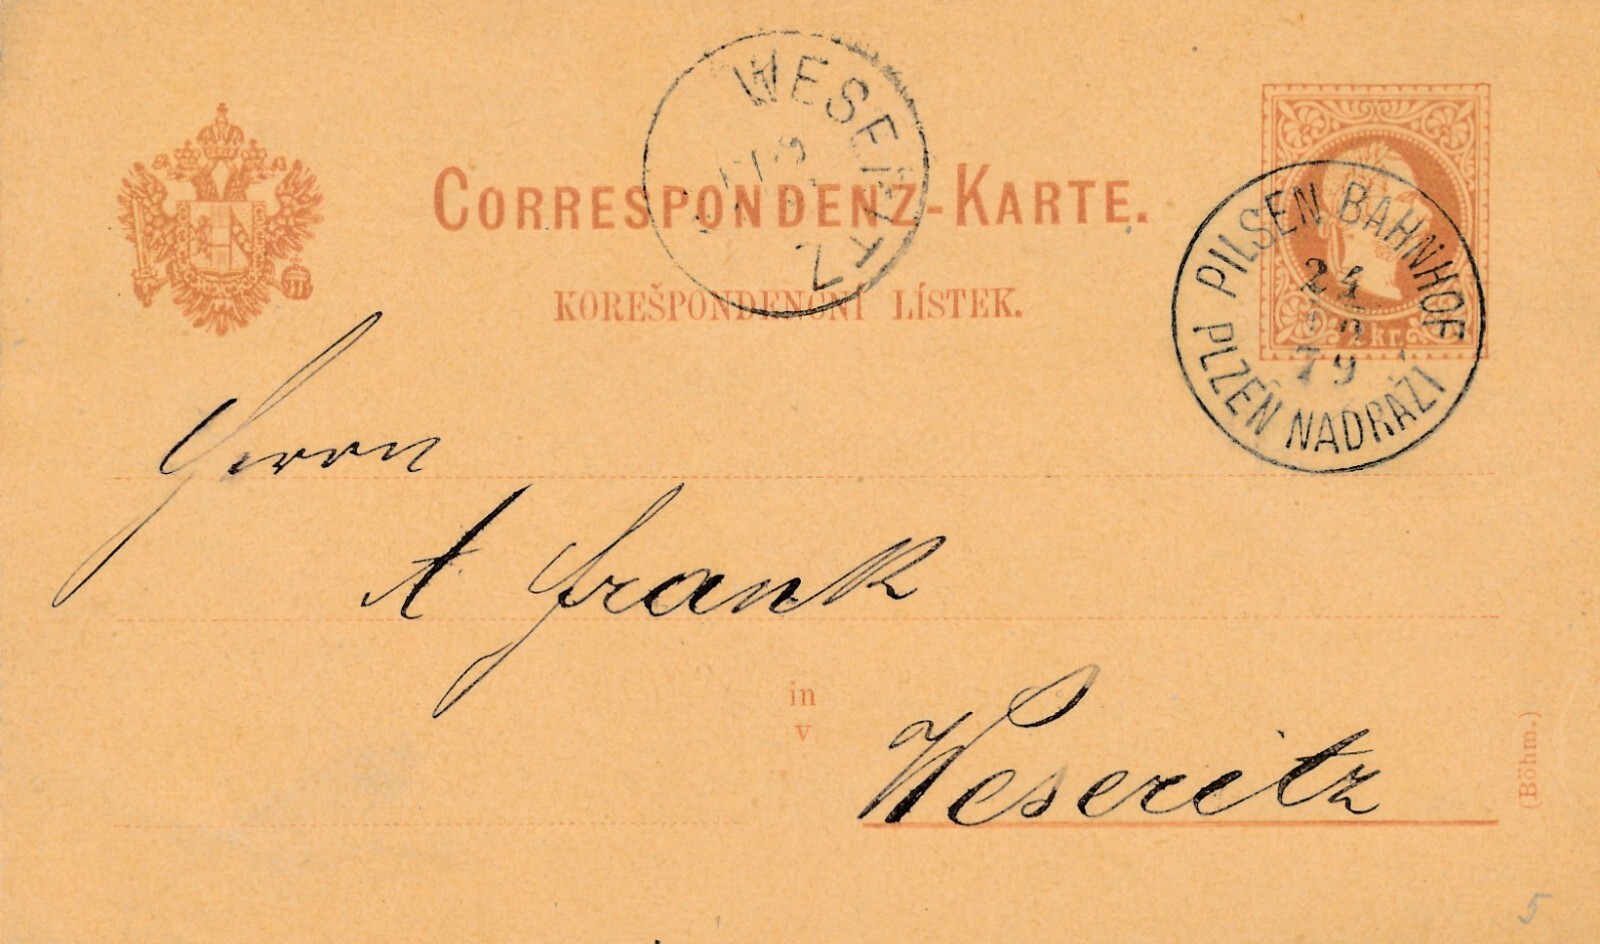 WESERITZ
CORRESPONDENZ-KARTE.
KOREŠPONDENČNÍ LÍSTEK.
2 kr.
PILSEN BAHNHOF
24
79
PLZEŇ NÁDRAŽÍ
Herrn
A Frank
in
v
Weseritz
(Böhm.)
5